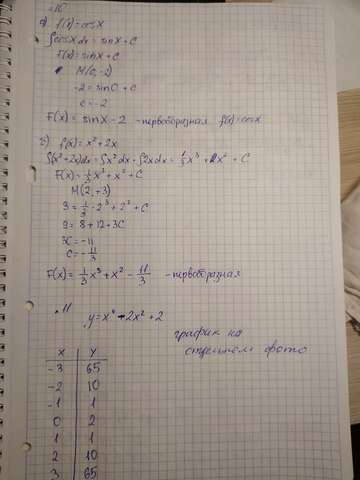 10
а) f(x) = cosx
∫cosx dx = sinx + C
F(x) = sinx + C
M(0, -2)
-2 = sin0 + C
C = -2
F(x) = sinx - 2 - первообразная f(x) = cosx
б) f(x) = x² + 2x
∫(x² + 2x)dx = ∫x²dx + ∫2xdx = 1/3 x³ + x² + C
F(x) = 1/3 x³ + x² + C
M(2, +3)
3 = 1/3 · 2³ + 2² + C
9 = 8 + 12 + 3C
3C = -11
C = - 11/3
F(x) = 1/3 x³ + x² - 11/3 - первообразная
11
y = x⁴ - 2x² + 2
график на
отдельном фото
x y
-3 65
-2 10
-1 1
0 2
1 1
2 10
3 65